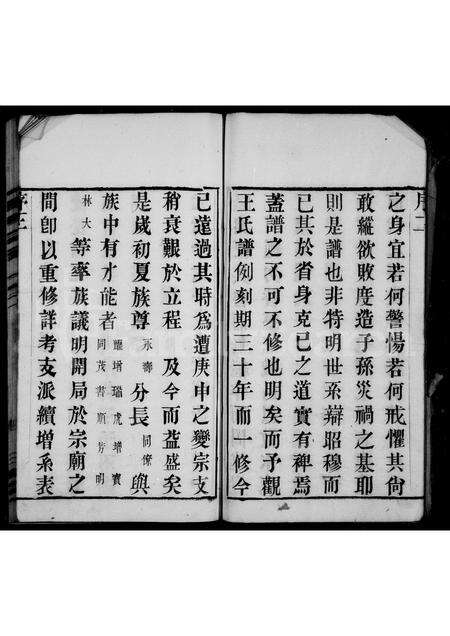 序二
之身宜若何警惕若何戒懼其尙
敢縱欲敗度造子孫災禍之基耶
則是譜也非特明世系辯昭穆而
已其於省身克己之道實有裨焉
蓋譜之不可不修也明矣而予觀
王氏譜例刻期三十年而一修今
已遠過其時爲遭庚申之變宗支
稍衰艱於立程 及今而益盛矣
是歲初夏族尊 永壽 分長 同僚 與
族中有才能者 增瑞虎增寶 同茂書順芳明
林大 等率族議明開局於宗廟之
間卽以重修詳考支派續增系表
序三